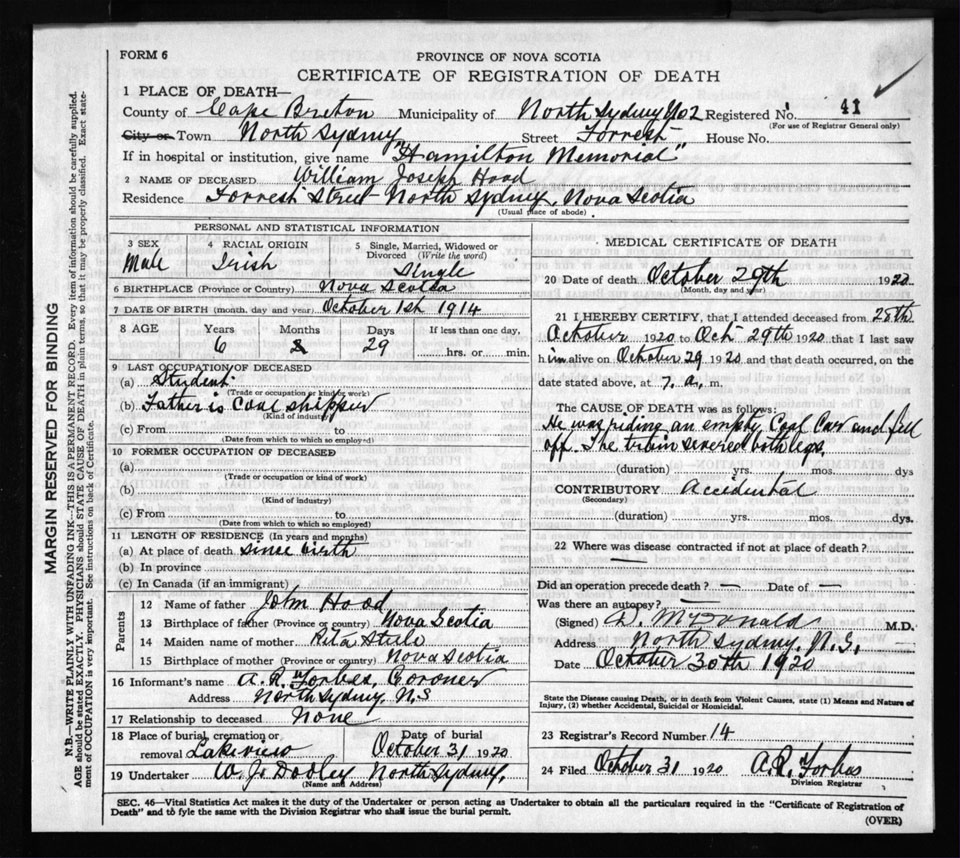 FORM 6
PROVINCE OF NOVA SCOTIA
CERTIFICATE OF REGISTRATION OF DEATH
1 PLACE OF DEATH—
County of Cape Breton Municipality of North Sydney No2 Registered No. 41
(For use of Registrar General only)
City or Town North Sydney Street Forrest House No.
If in hospital or institution, give name "Hamilton Memorial"
2 NAME OF DECEASED William Joseph Hood
Residence Forrest Street North Sydney, Nova Scotia
(Usual place of abode)
PERSONAL AND STATISTICAL INFORMATION
3 SEX Male
4 RACIAL ORIGIN Irish
5 Single, Married, Widowed or Divorced (Write the word) Single
6 BIRTHPLACE (Province or Country) Nova Scotia
7 DATE OF BIRTH (month, day and year) October 1st 1914
8 AGE Years Months Days If less than one day,
6 29 hrs. or min.
9 LAST OCCUPATION OF DECEASED
(a) Student
(Trade or occupation or kind of work)
(b) Father is Coal shipper
(Kind of industry)
(c) From to
(Date from which to which so employed)
10 FORMER OCCUPATION OF DECEASED
(a)
(Trade or occupation or kind of work)
(b)
(Kind of industry)
(c) From to
(Date from which to which so employed)
11 LENGTH OF RESIDENCE (In years and months)
(a) At place of death since birth
(b) In province
(c) In Canada (if an immigrant)
Parents
12 Name of father John Hood
13 Birthplace of father (Province or country) Nova Scotia
14 Maiden name of mother Rita Steele
15 Birthplace of mother (Province or country) Nova Scotia
16 Informant's name A. R. Forbes, Coroner
Address North Sydney, N.S
17 Relationship to deceased None
18 Place of burial, cremation or removal Lakeview
Date of burial October 31 1920
19 Undertaker W. J. Dooley North Sydney,
(Name and Address)
MEDICAL CERTIFICATE OF DEATH
20 Date of death October 29th 1920
(Month, day and year)
21 I HEREBY CERTIFY, that I attended deceased from 28th
October 1920 to Oct 29th 1920 that I last saw
him alive on October 29 1920 and that death occurred, on the
date stated above, at 7. a. m.
The CAUSE OF DEATH was as follows:
He was riding an empty Coal Car and fell
off. The train severed both legs.
(duration) yrs. mos. dys
CONTRIBUTORY Accidental
(Secondary)
(duration) yrs. mos. dys.
22 Where was disease contracted if not at place of death?
—
Did an operation precede death? — Date of —
Was there an autopsy? —
(Signed) D. McDonald M.D.
Address North Sydney, N.S.
Date October 30th 1920
State the Disease causing Death, or in death from Violent Causes, state (1) Means and Nature of
Injury, (2) whether Accidental, Suicidal or Homicidal.
23 Registrar's Record Number 14
24 Filed October 31 1920 A.R. Forbes
Division Registrar
SEC. 46—Vital Statistics Act makes it the duty of the Undertaker or person acting as Undertaker to obtain all the particulars required in the "Certificate of Registration of
Death" and to fyle the same with the Division Registrar who shall issue the burial permit.
(OVER)
MARGIN RESERVED FOR BINDING
N.B.—WRITE PLAINLY WITH UNFADING INK—THIS IS A PERMANENT RECORD. Every item of information should be carefully supplied.
AGE should be stated EXACTLY. PHYSICIANS should STATE CAUSE OF DEATH in plain terms, so that it may be properly classified. Exact state-
ment of OCCUPATION is very important. See instructions on back of Certificate.